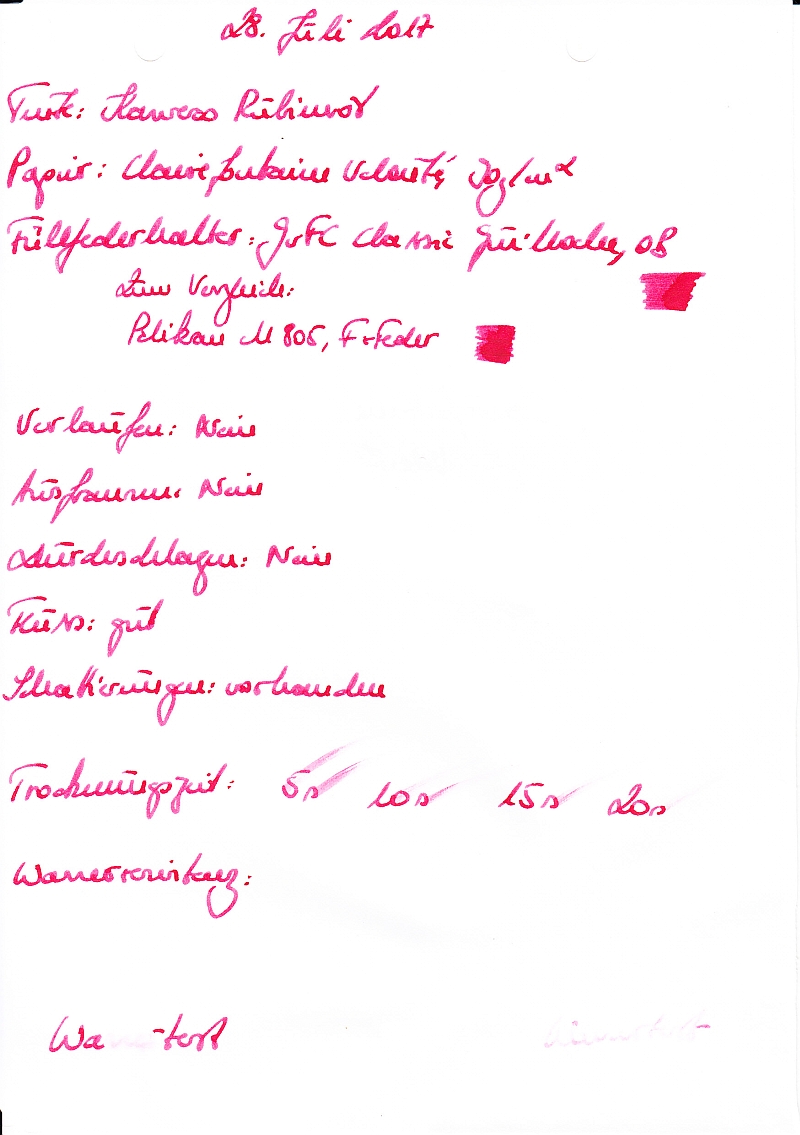 28. Juli 2017
Tinte: Kaweco Rubinrot
Papier: Clairefontaine Velouté, 90g/m²
Füllfederhalter: GvFC Classic Guilloche, OB
Zum Vergleich:
Pelikan M 805, F-Feder
Verlaufen: Nein
Ausfransen: Nein
Durchschlagen: Nein
Fluss: gut
Schattierungen: vorhanden
Trocknungszeit: 5s 10s 15s 20s
Wasserresistenz:
Wa -test